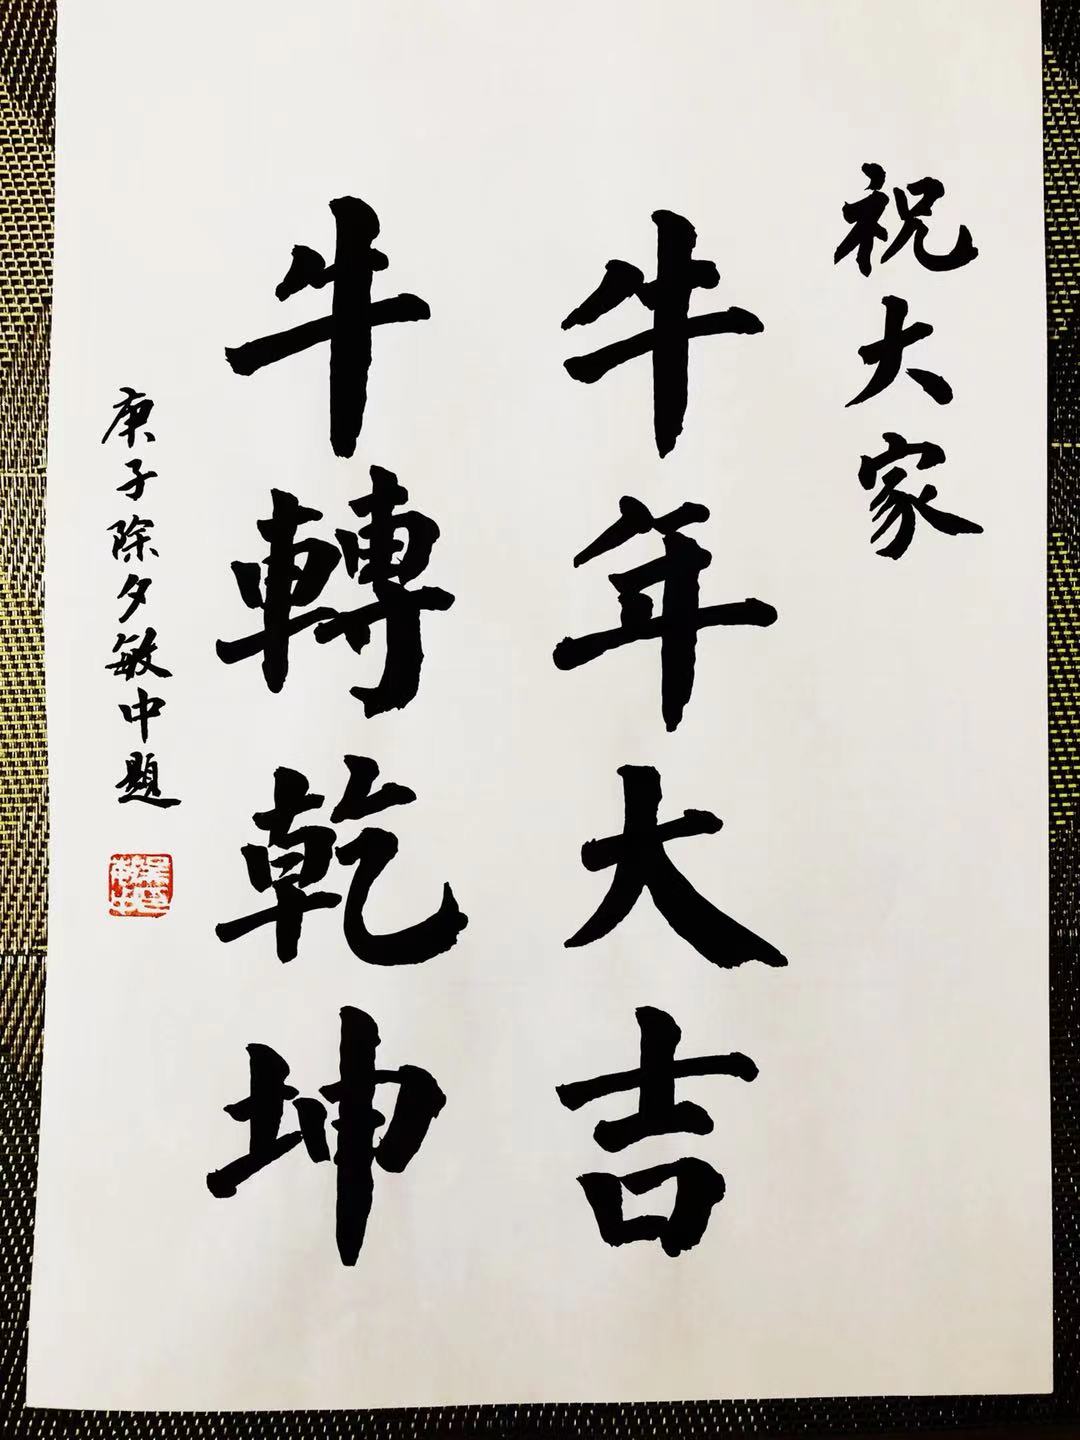 祝大家
牛年大吉
牛轉乾坤
庚子除夕敏中題